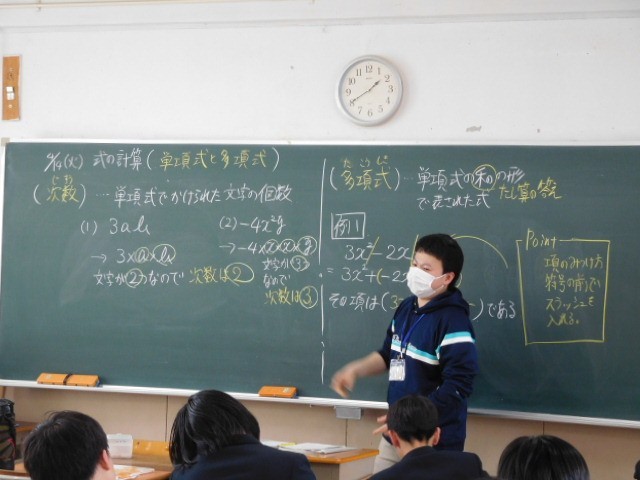 (火) 式の計算(単項式と多項式)
じすう
(次数)…単項式でかけられた文字の個数
(1) 3ab
→ 3×a×b
文字が②なので 次数は2
(2) -4x²y
→ -4×x×x×y
文字が③
なので
次数は③
たこうしき
(多項式)…単項式の和の形
で表された式 たし算の答え
例1
3x² - 2x
= 3x² + (-2x
その項は(3
)である
Point
項のみつけ方
符号の前で
スラッシュを
入れる。
12
1
2
3
4
5
6
7
8
9
10
11